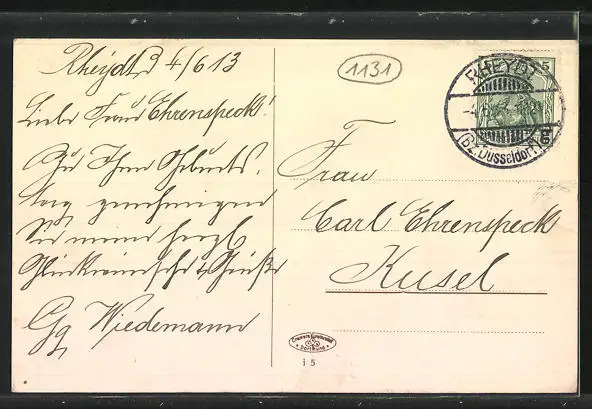 Rheydt, d 4/6 13
Liebe Frau Ehrenspeck!
Zu Ihrem Geburts-
tag genehmigen
Sie meine herzl.
Glückwünsche & Grüße
Gg Wiedemann
1131
RHEYDT
(Bz. Düsseldorf)
5
Frau
Carl Ehrenspeck
Kusel
Dortmund
i 5